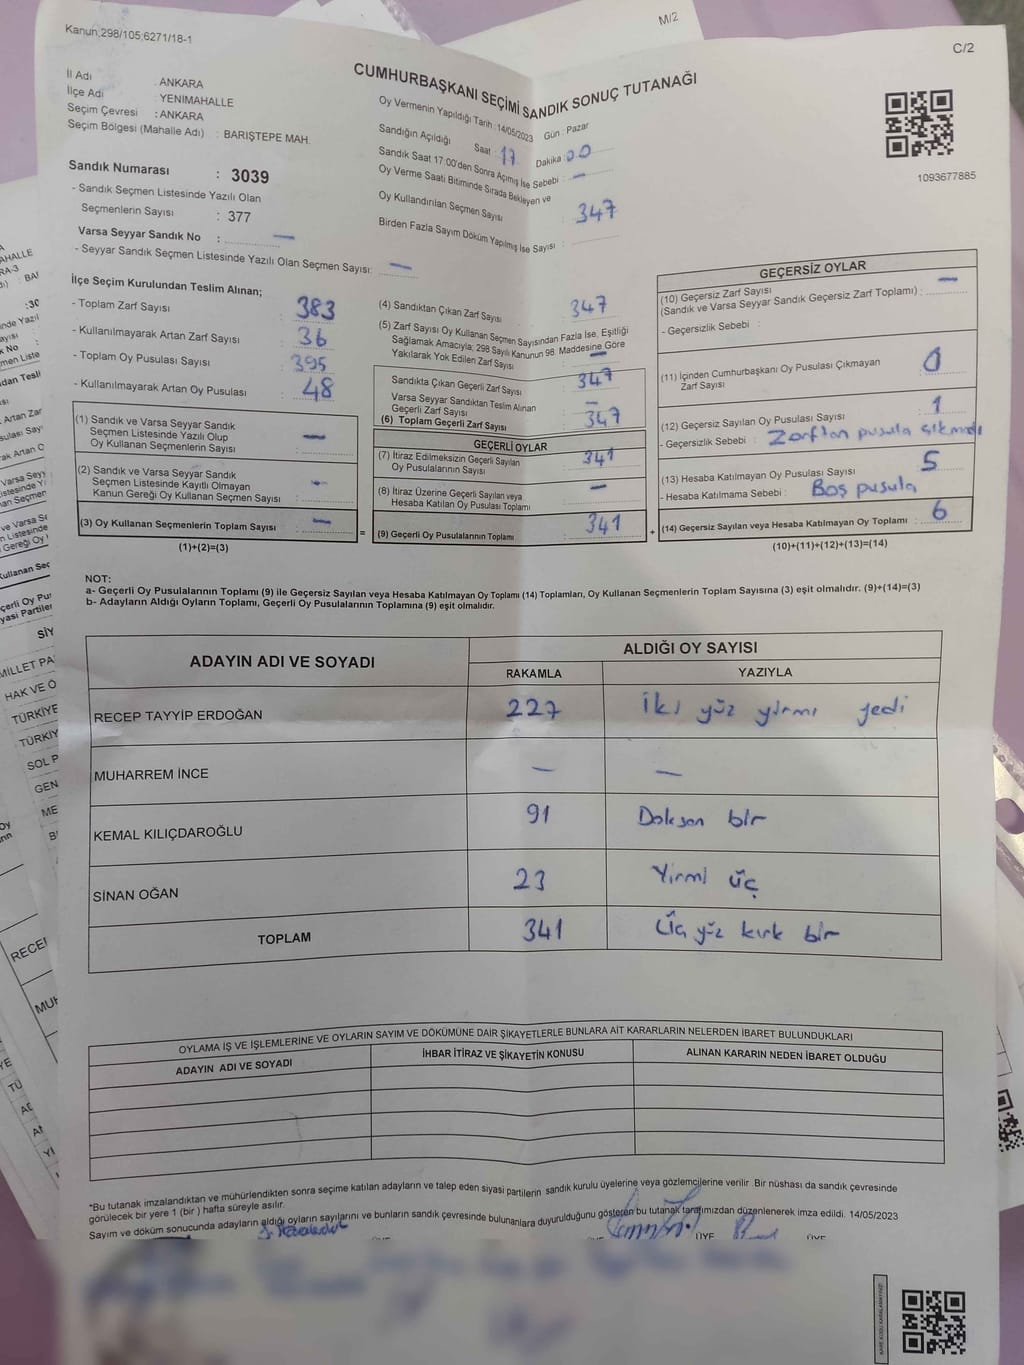 Kanun;298/105;6271/18-1
M/2
C/2
CUMHURBAŞKANI SEÇİMİ SANDIK SONUÇ TUTANAĞI
İl Adı : ANKARA
İlçe Adı : YENİMAHALLE
Seçim Çevresi : ANKARA
Seçim Bölgesi (Mahalle Adı) : BARIŞTEPE MAH.
Sandık Numarası : 3039
- Sandık Seçmen Listesinde Yazılı Olan
Seçmenlerin Sayısı : 377
Varsa Seyyar Sandık No : —
- Seyyar Sandık Seçmen Listesinde Yazılı Olan Seçmen Sayısı: —
Oy Vermenin Yapıldığı Tarih : 14/05/2023 Gün : Pazar
Sandığın Açıldığı Saat : 17 Dakika : 00
Sandık Saat 17:00'den Sonra Açılmış İse Sebebi : —
Oy Verme Saati Bitiminde Sırada Bekleyen ve
Oy Kullandırılan Seçmen Sayısı : 347
Birden Fazla Sayım Döküm Yapılmış İse Sayısı :
1093677885
İlçe Seçim Kurulundan Teslim Alınan;
- Toplam Zarf Sayısı : 383
- Kullanılmayarak Artan Zarf Sayısı : 36
- Toplam Oy Pusulası Sayısı : 395
- Kullanılmayarak Artan Oy Pusulası : 48
(1) Sandık ve Varsa Seyyar Sandık
Seçmen Listesinde Yazılı Olup
Oy Kullanan Seçmenlerin Sayısı : —
(2) Sandık ve Varsa Seyyar Sandık
Seçmen Listesinde Kayıtlı Olmayan
Kanun Gereği Oy Kullanan Seçmen Sayısı : —
(3) Oy Kullanan Seçmenlerin Toplam Sayısı : —
(1)+(2)=(3)
=
(4) Sandıktan Çıkan Zarf Sayısı : 347
(5) Zarf Sayısı Oy Kullanan Seçmen Sayısından Fazla İse, Eşitliği
Sağlamak Amacıyla; 298 Sayılı Kanunun 98. Maddesine Göre
Yakılarak Yok Edilen Zarf Sayısı : —
Sandıkta Çıkan Geçerli Zarf Sayısı : 347
Varsa Seyyar Sandıktan Teslim Alınan
Geçerli Zarf Sayısı : —
(6) Toplam Geçerli Zarf Sayısı : 347
GEÇERLİ OYLAR
(7) İtiraz Edilmeksizin Geçerli Sayılan
Oy Pusulalarının Sayısı : 341
(8) İtiraz Üzerine Geçerli Sayılan veya
Hesaba Katılan Oy Pusulası Toplamı : —
(9) Geçerli Oy Pusulalarının Toplamı : 341
+
GEÇERSİZ OYLAR
(10) Geçersiz Zarf Sayısı
(Sandık ve Varsa Seyyar Sandık Geçersiz Zarf Toplamı) : —
- Geçersizlik Sebebi :
(11) İçinden Cumhurbaşkanı Oy Pusulası Çıkmayan
Zarf Sayısı : 0
(12) Geçersiz Sayılan Oy Pusulası Sayısı : 1
- Geçersizlik Sebebi : Zarftan pusula çıkmadı
(13) Hesaba Katılmayan Oy Pusulası Sayısı : 5
- Hesaba Katılmama Sebebi : Boş pusula
(14) Geçersiz Sayılan veya Hesaba Katılmayan Oy Toplamı : 6
(10)+(11)+(12)+(13)=(14)
NOT:
a- Geçerli Oy Pusulalarının Toplamı (9) ile Geçersiz Sayılan veya Hesaba Katılmayan Oy Toplamı (14) Toplamları, Oy Kullanan Seçmenlerin Toplam Sayısına (3) eşit olmalıdır. (9)+(14)=(3)
b- Adayların Aldığı Oyların Toplamı, Geçerli Oy Pusulalarının Toplamına (9) eşit olmalıdır.
ADAYIN ADI VE SOYADI ALDIĞI OY SAYISI
RAKAMLA YAZIYLA
RECEP TAYYİP ERDOĞAN 227 İki yüz yirmi yedi
MUHARREM İNCE — —
KEMAL KILIÇDAROĞLU 91 Doksan bir
SİNAN OĞAN 23 Yirmi üç
TOPLAM 341 Üç yüz kırk bir
OYLAMA İŞ VE İŞLEMLERİNE VE OYLARIN SAYIM VE DÖKÜMÜNE DAİR ŞİKAYETLERLE BUNLARA AİT KARARLARIN NELERDEN İBARET BULUNDUKLARI
ADAYIN ADI VE SOYADI İHBAR İTİRAZ VE ŞİKAYETİN KONUSU ALINAN KARARIN NEDEN İBARET OLDUĞU
*Bu tutanak imzalandıktan ve mühürlendikten sonra seçime katılan adayların ve talep eden siyasi partilerin sandık kurulu üyelerine veya gözlemcilerine verilir. Bir nüshası da sandık çevresinde
görülecek bir yere 1 (bir ) hafta süreyle asılır.
Sayım ve döküm sonucunda adayların aldığı oyların sayılarını ve bunların sandık çevresinde bulunanlara duyurulduğunu gösteren bu tutanak tarafımızdan düzenlenerek imza edildi. 14/05/2023
ÜYE ÜYE